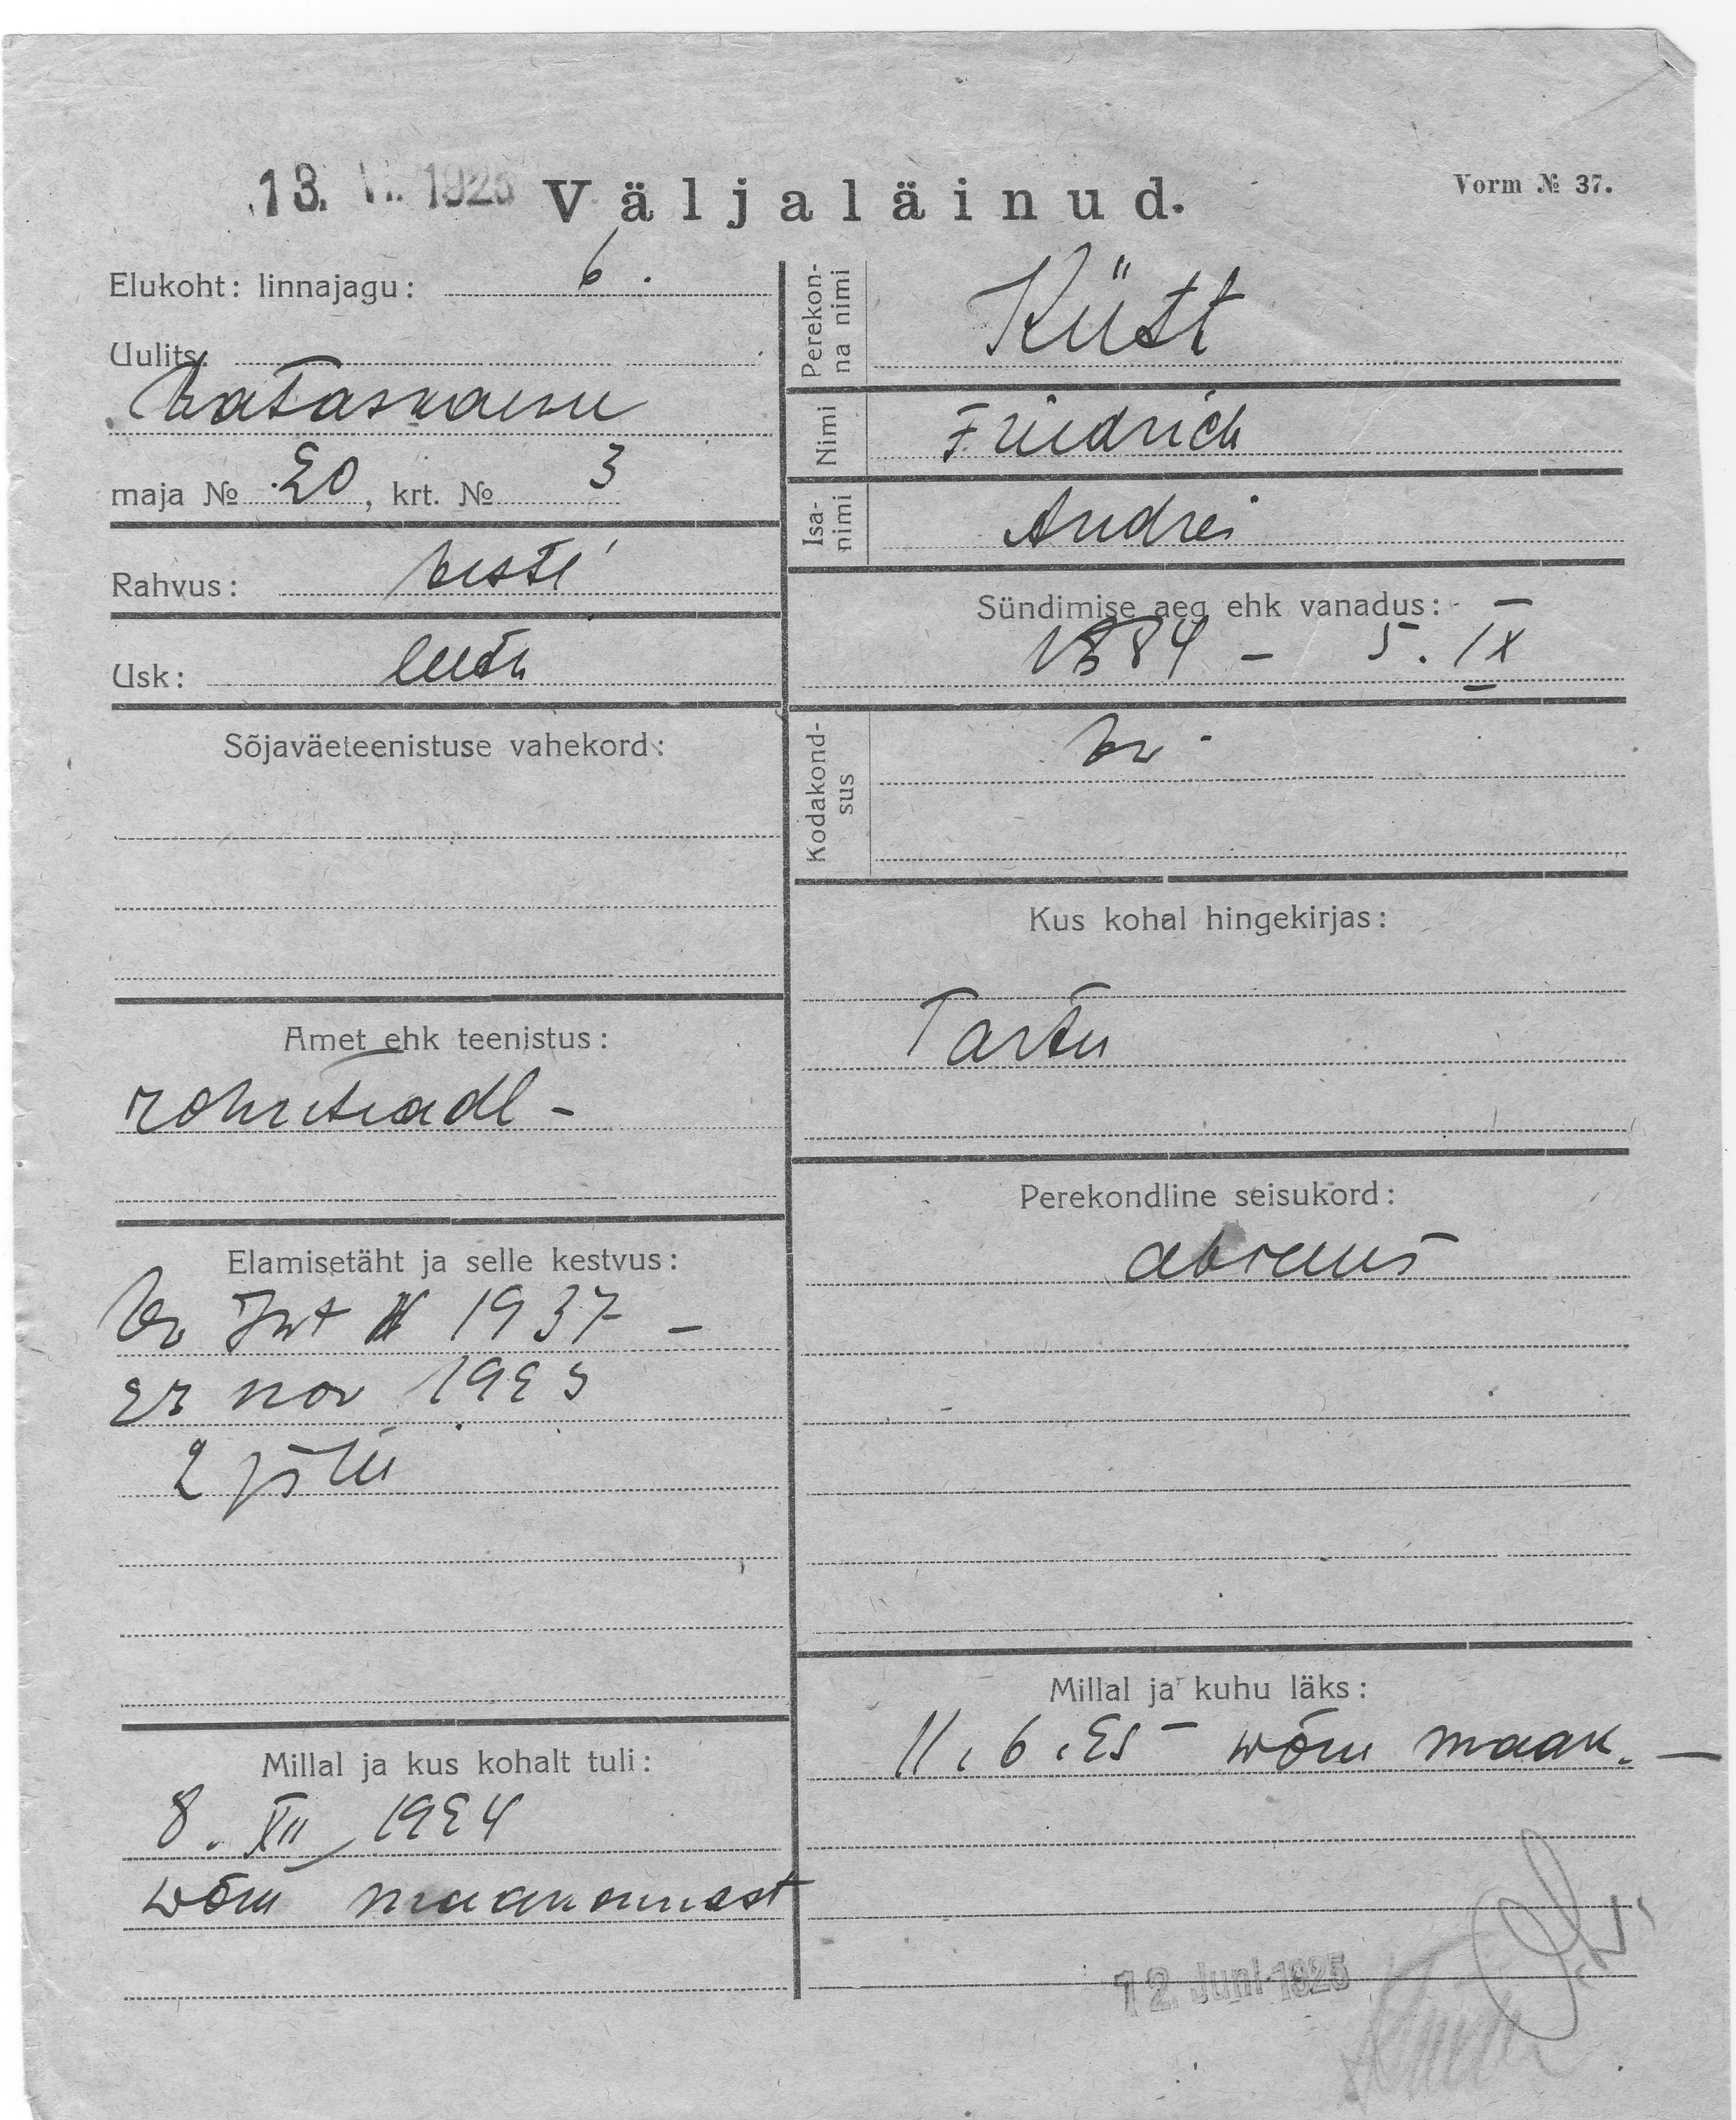 13. VI. 1925
Väljaläinud.
Vorm № 37.
Elukoht: linnajagu: 6.
Uulits:
maja № 20, krt. № 3
Rahvus: eesti
Usk: luth
Sõjaväeteenistuse vahekord:
Amet ehk teenistus:
rohuteadl -
Elamisetäht ja selle kestvus:
1937 -
nov 1923
Millal ja kus kohalt tuli:
8. XII 1924
wõru maakonnast
Perekonna nimi
Küst
Nimi
Friedrich
Isanimi
Andrei
Sündimise aeg ehk vanadus:
1884 - 5. IX
Kodakondsus
Kus kohal hingekirjas:
Tartu
Perekondline seisukord:
abielus
Millal ja kuhu läks:
11. 6. 25 wõru maak. -
12. Juni 1925